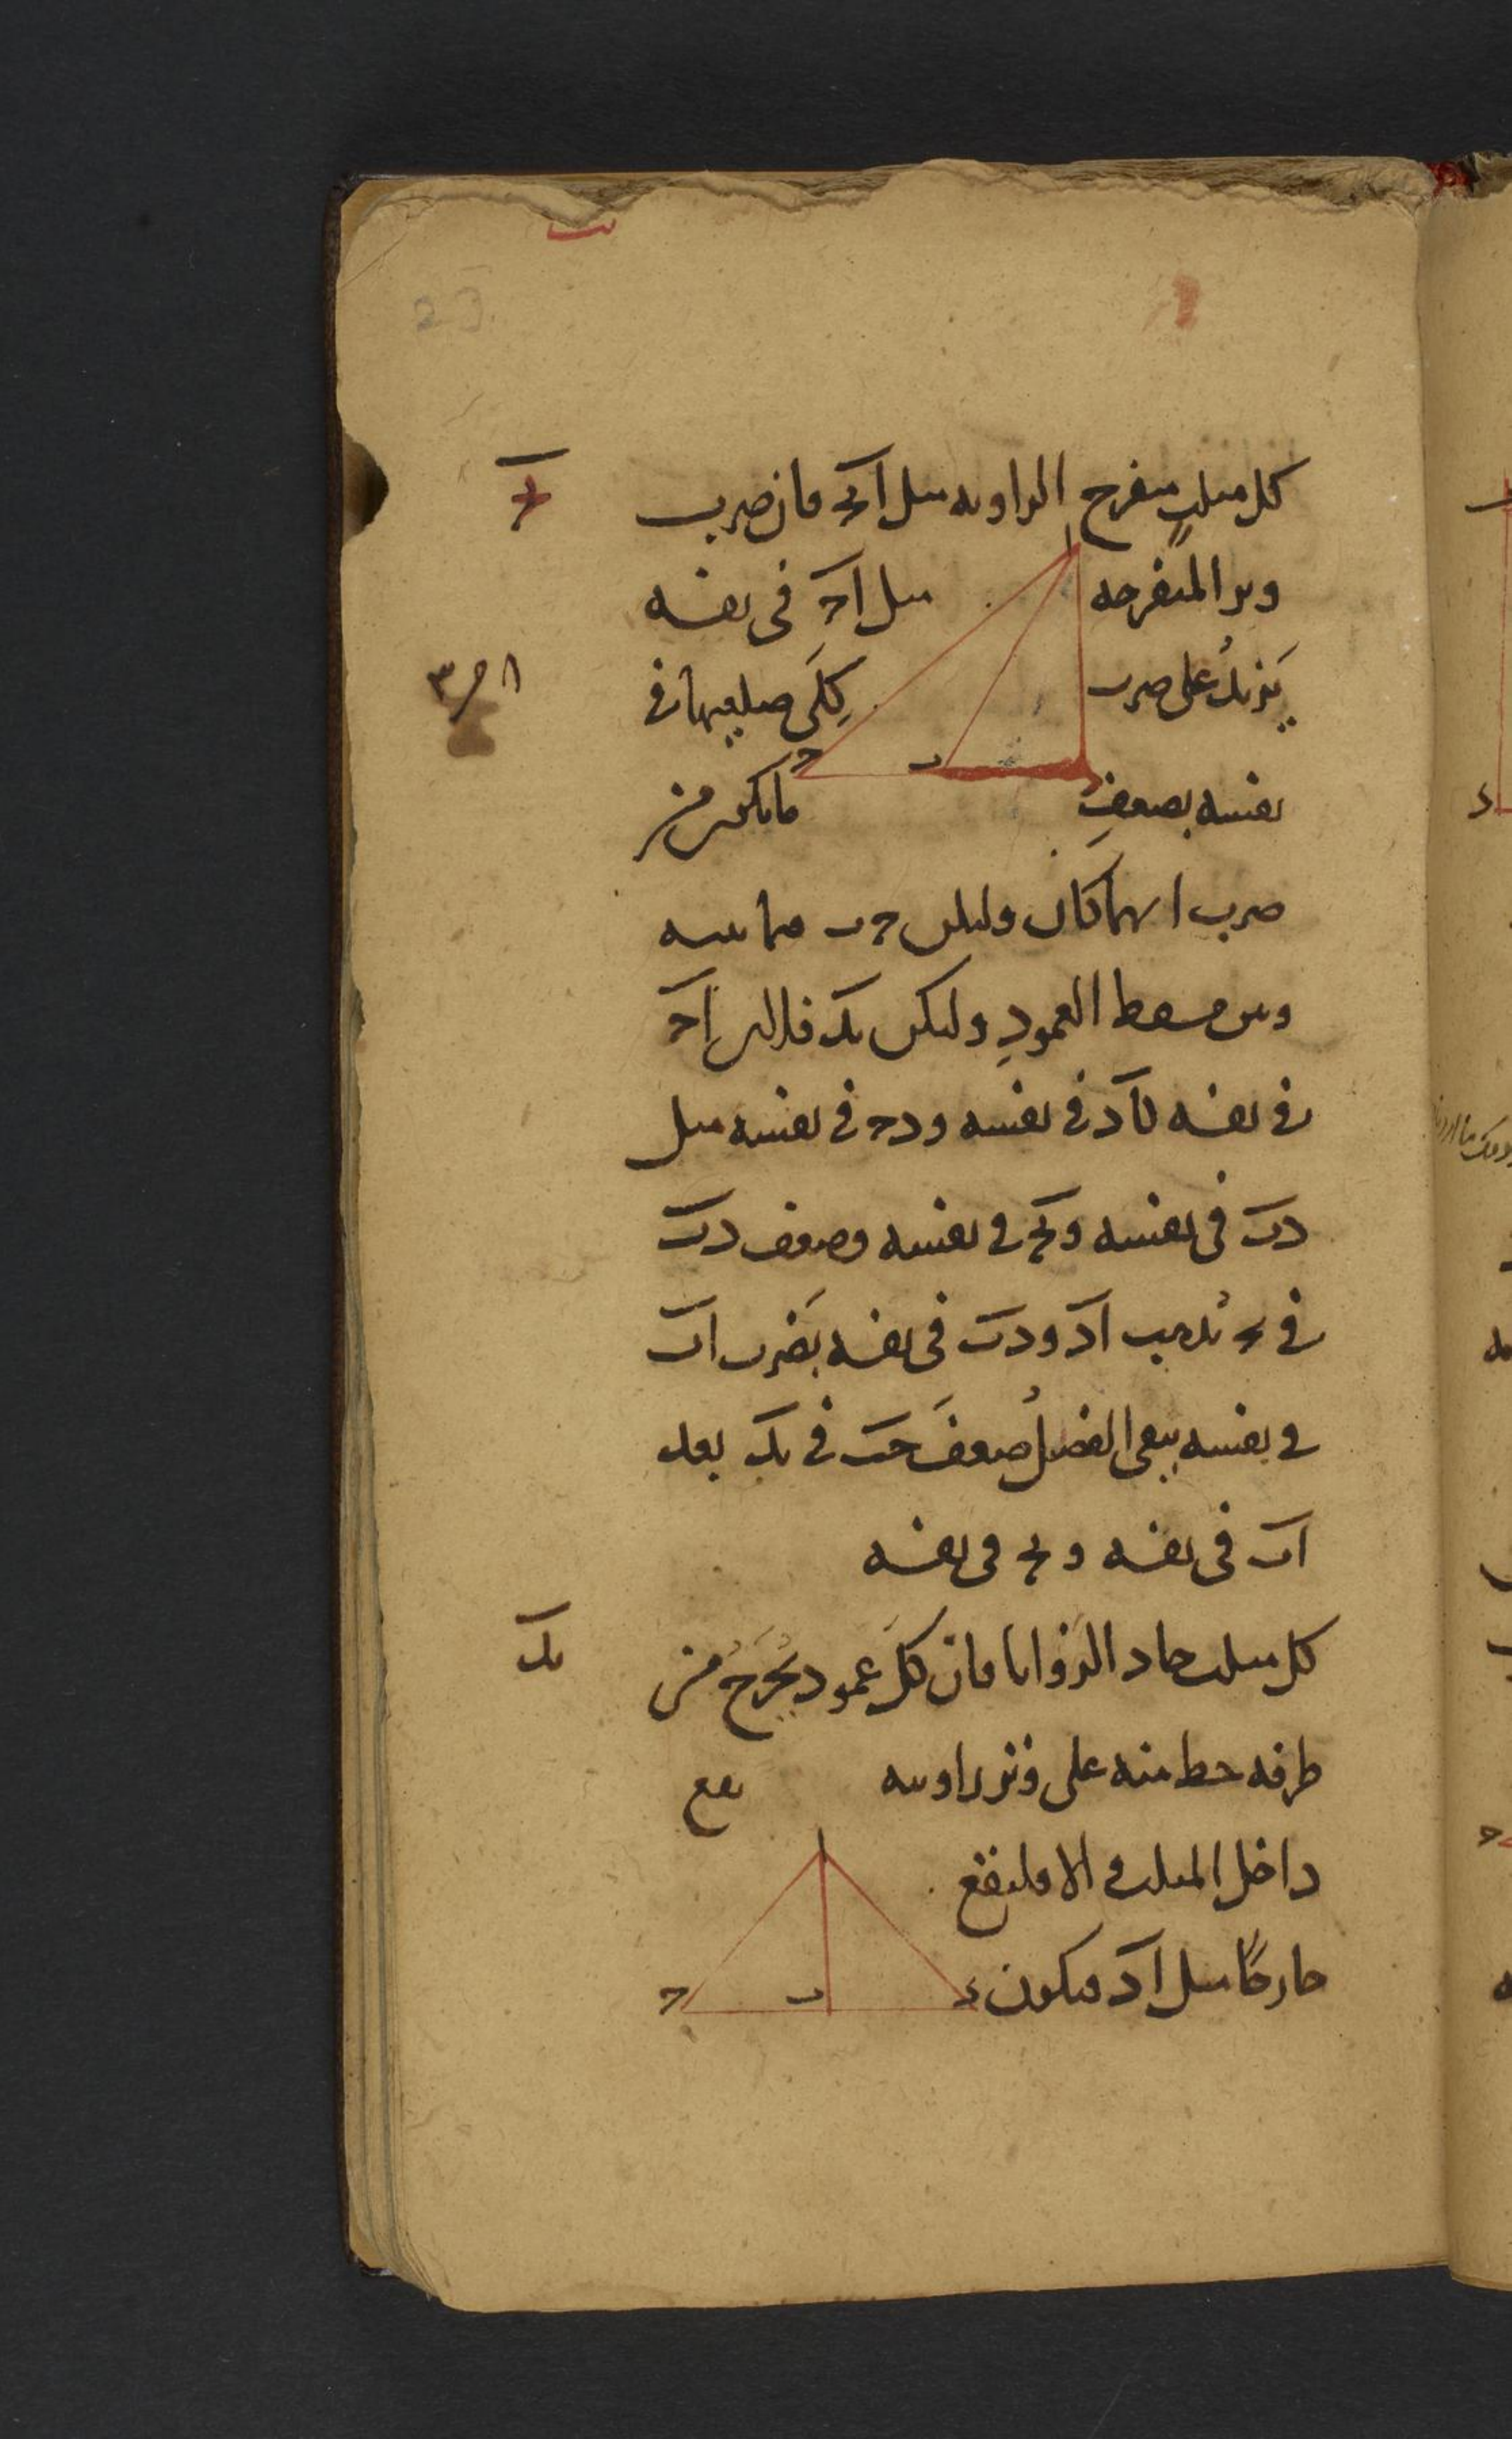 كل مثلث منفرج الزاويه مثل ابج فان ضرب
وتر المنفرجه مثل اج فى نفسه
يزيد على ضرب كلى ضلعيها فى
نفسه بضعف ما يكون من
ضرب ايهما كان وليكن جب فيما بينه
وبين مسقط العمود وليكن بد فلان اج
فى نفسه كاد فى نفسه ودج فى نفسه مثل
دب فى نفسه وبج فى نفسه وضعف دب
فى بج يذهب اد ودب فى نفسه بضرب اب
فى نفسه يبقى الفضل ضعف جب فى بد بعد
اب فى نفسه وبج فى نفسه
كل مثلث حاد الزوايا فان كل عمود يخرج من
طرفه خط منه على وتر زاويته يقع
داخل المثلث والا فليقع
خارجا مثل اد فيكون
ا
ب
ج
ا
د
ب
ج